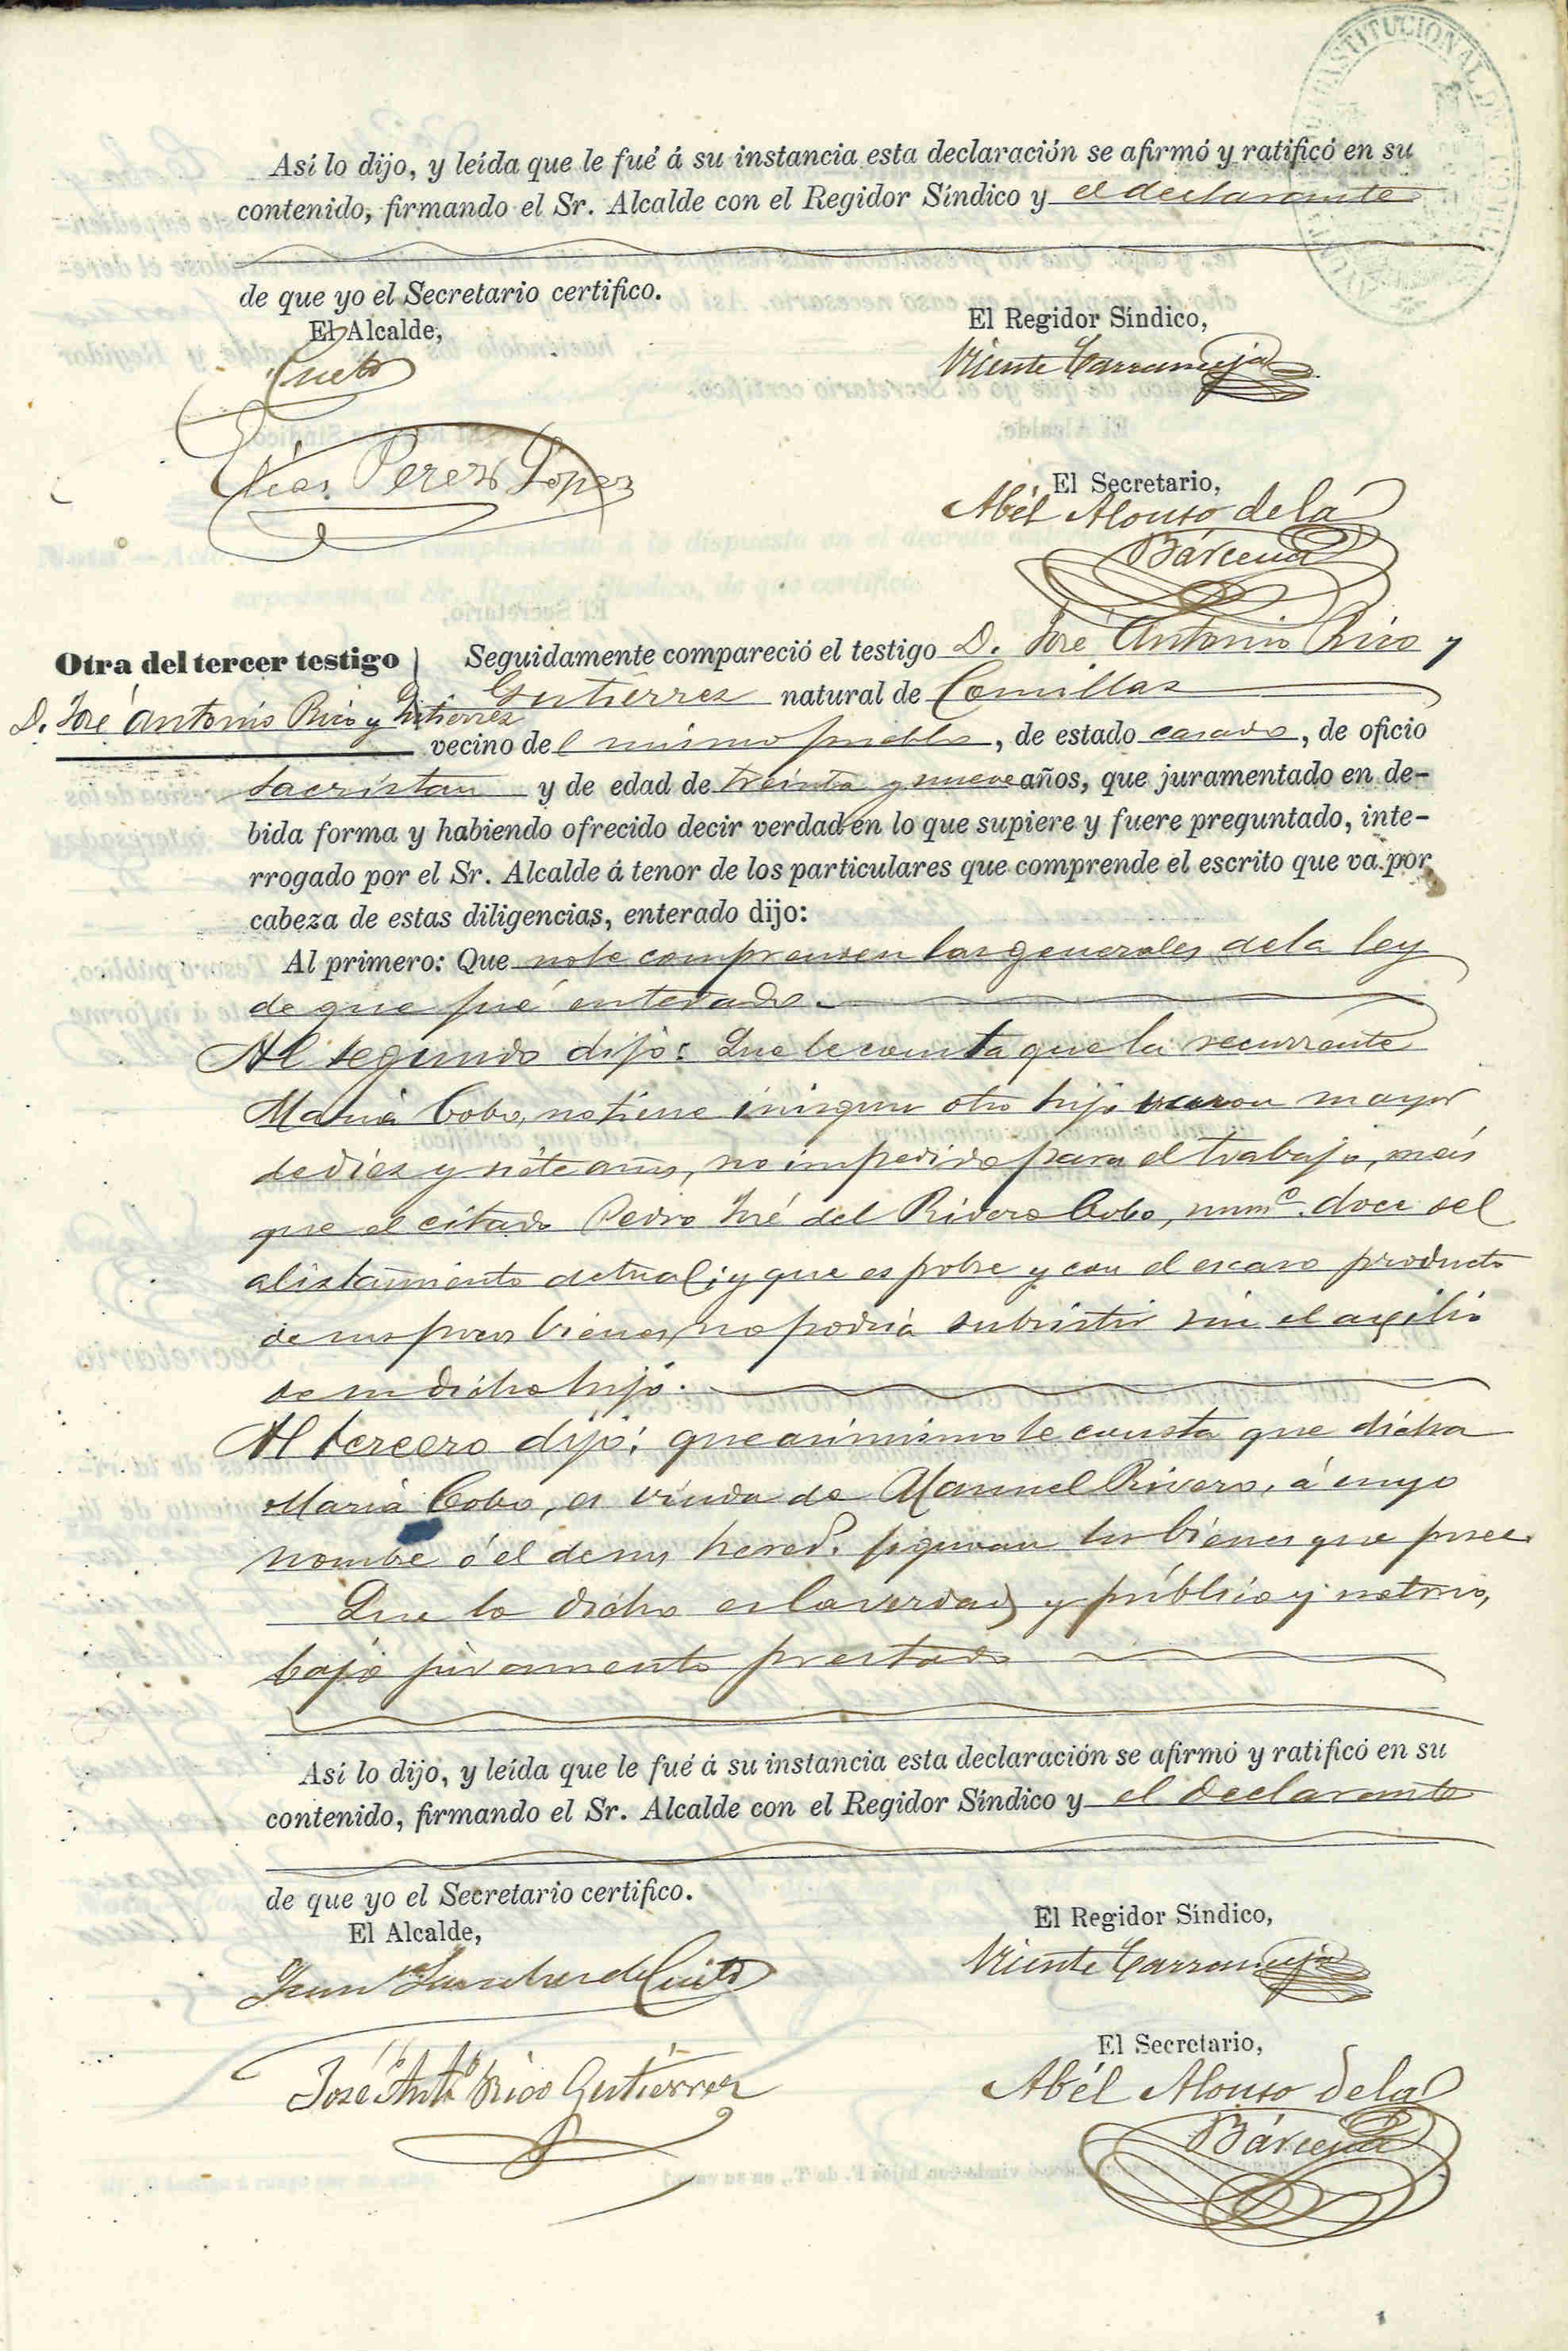 Así lo dijo, y leída que le fué á su instancia esta declaración se afirmó y ratificó en su
contenido, firmando el Sr. Alcalde con el Regidor Síndico y el declarante
de que yo el Secretario certifico.
El Alcalde,
El Regidor Síndico,
Cueto
Vicente Carranceja
Elías Perez López
El Secretario,
Abél Alonso de la
Bárcena
Otra del tercer testigo
D. José Antonio Rico y Gutierrez
Seguidamente compareció el testigo D. José Antonio Rico y
Gutiérrez natural de Comillas
vecino del mismo pueblo, de estado casado, de oficio
sacristan y de edad de treinta y nueve años, que juramentado en de-
bida forma y habiendo ofrecido decir verdad en lo que supiere y fuere preguntado, inte-
rrogado por el Sr. Alcalde á tenor de los particulares que comprende el escrito que va por
cabeza de estas diligencias, enterado dijo:
Al primero: Que no le comprenden las generales de la ley
de que fué enterado.
Al segundo dijo: Que le consta que la recurrente
Maria Cobo, no tiene ningun otro hijo varon mayor
de diez y siete años, no impedido para el trabajo, más
que el citado Pedro José del Rivero Cobo, numº. doce del
alistamiento actual; y que es pobre y con el escaso producto
de sus pocos bienes, no podria subsistir sin el auxilio
de su dicho hijo.
Al tercero dijo: que asimismo le consta que dicha
Maria Cobo, es viuda de Manuel Rivero, á cuyo
nombre ó el de sus hered. figuran los bienes que posee.
Que lo dicho es la verdad y público y notorio,
bajo juramento prestado
Así lo dijo, y leída que le fué á su instancia esta declaración se afirmó y ratificó en su
contenido, firmando el Sr. Alcalde con el Regidor Síndico y el declarante
de que yo el Secretario certifico.
El Alcalde,
El Regidor Síndico,
Juan Sanchez de Cueto
Vicente Carranceja
El Secretario,
José Antº Rico Gutiérrez
Abél Alonso de la
Bárcena